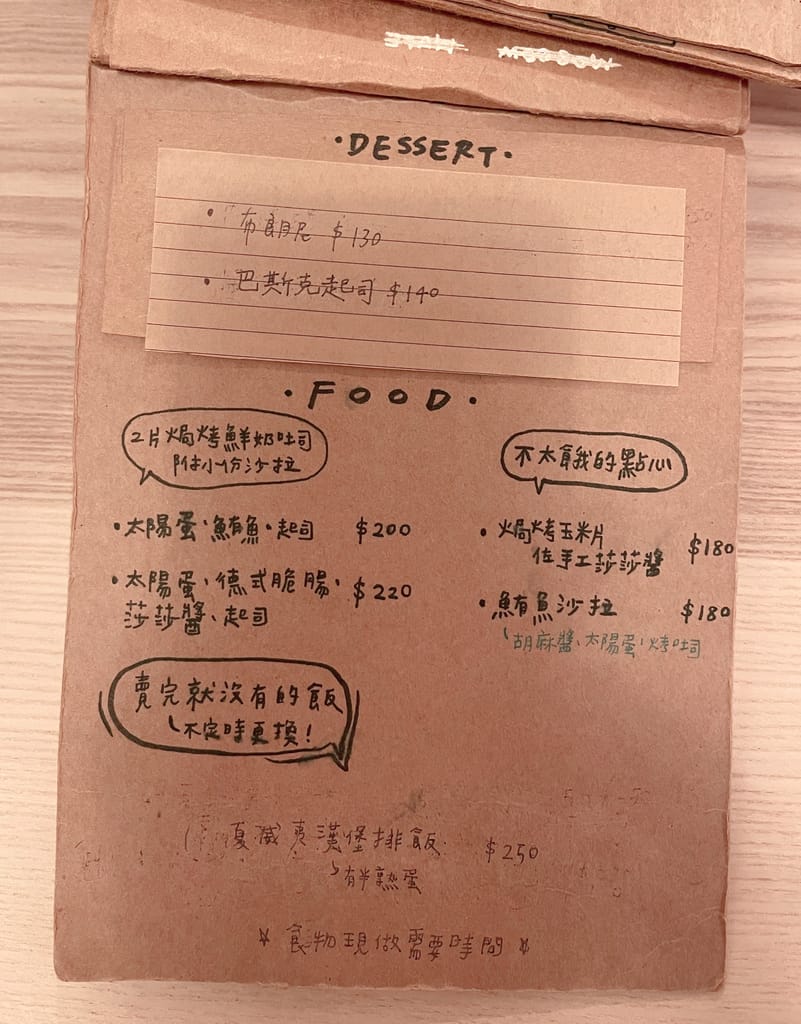 ·DESSERT·
· 布朗尼 $130
· 巴斯克起司 $140
·FOOD·
2片焗烤鮮奶吐司
附小份沙拉
·太陽蛋、鮪魚、起司 $200
·太陽蛋、德式脆腸、
莎莎醬、起司 $220
不太餓我的點心
·焗烤玉米片
佐手工莎莎醬 $180
·鮪魚沙拉 $180
胡麻醬、太陽蛋、烤吐司
賣完就沒有的飯
不定時更換!
夏威夷漢堡排飯 $250
有半熟蛋
☆ 食物現做需要時間 ☆